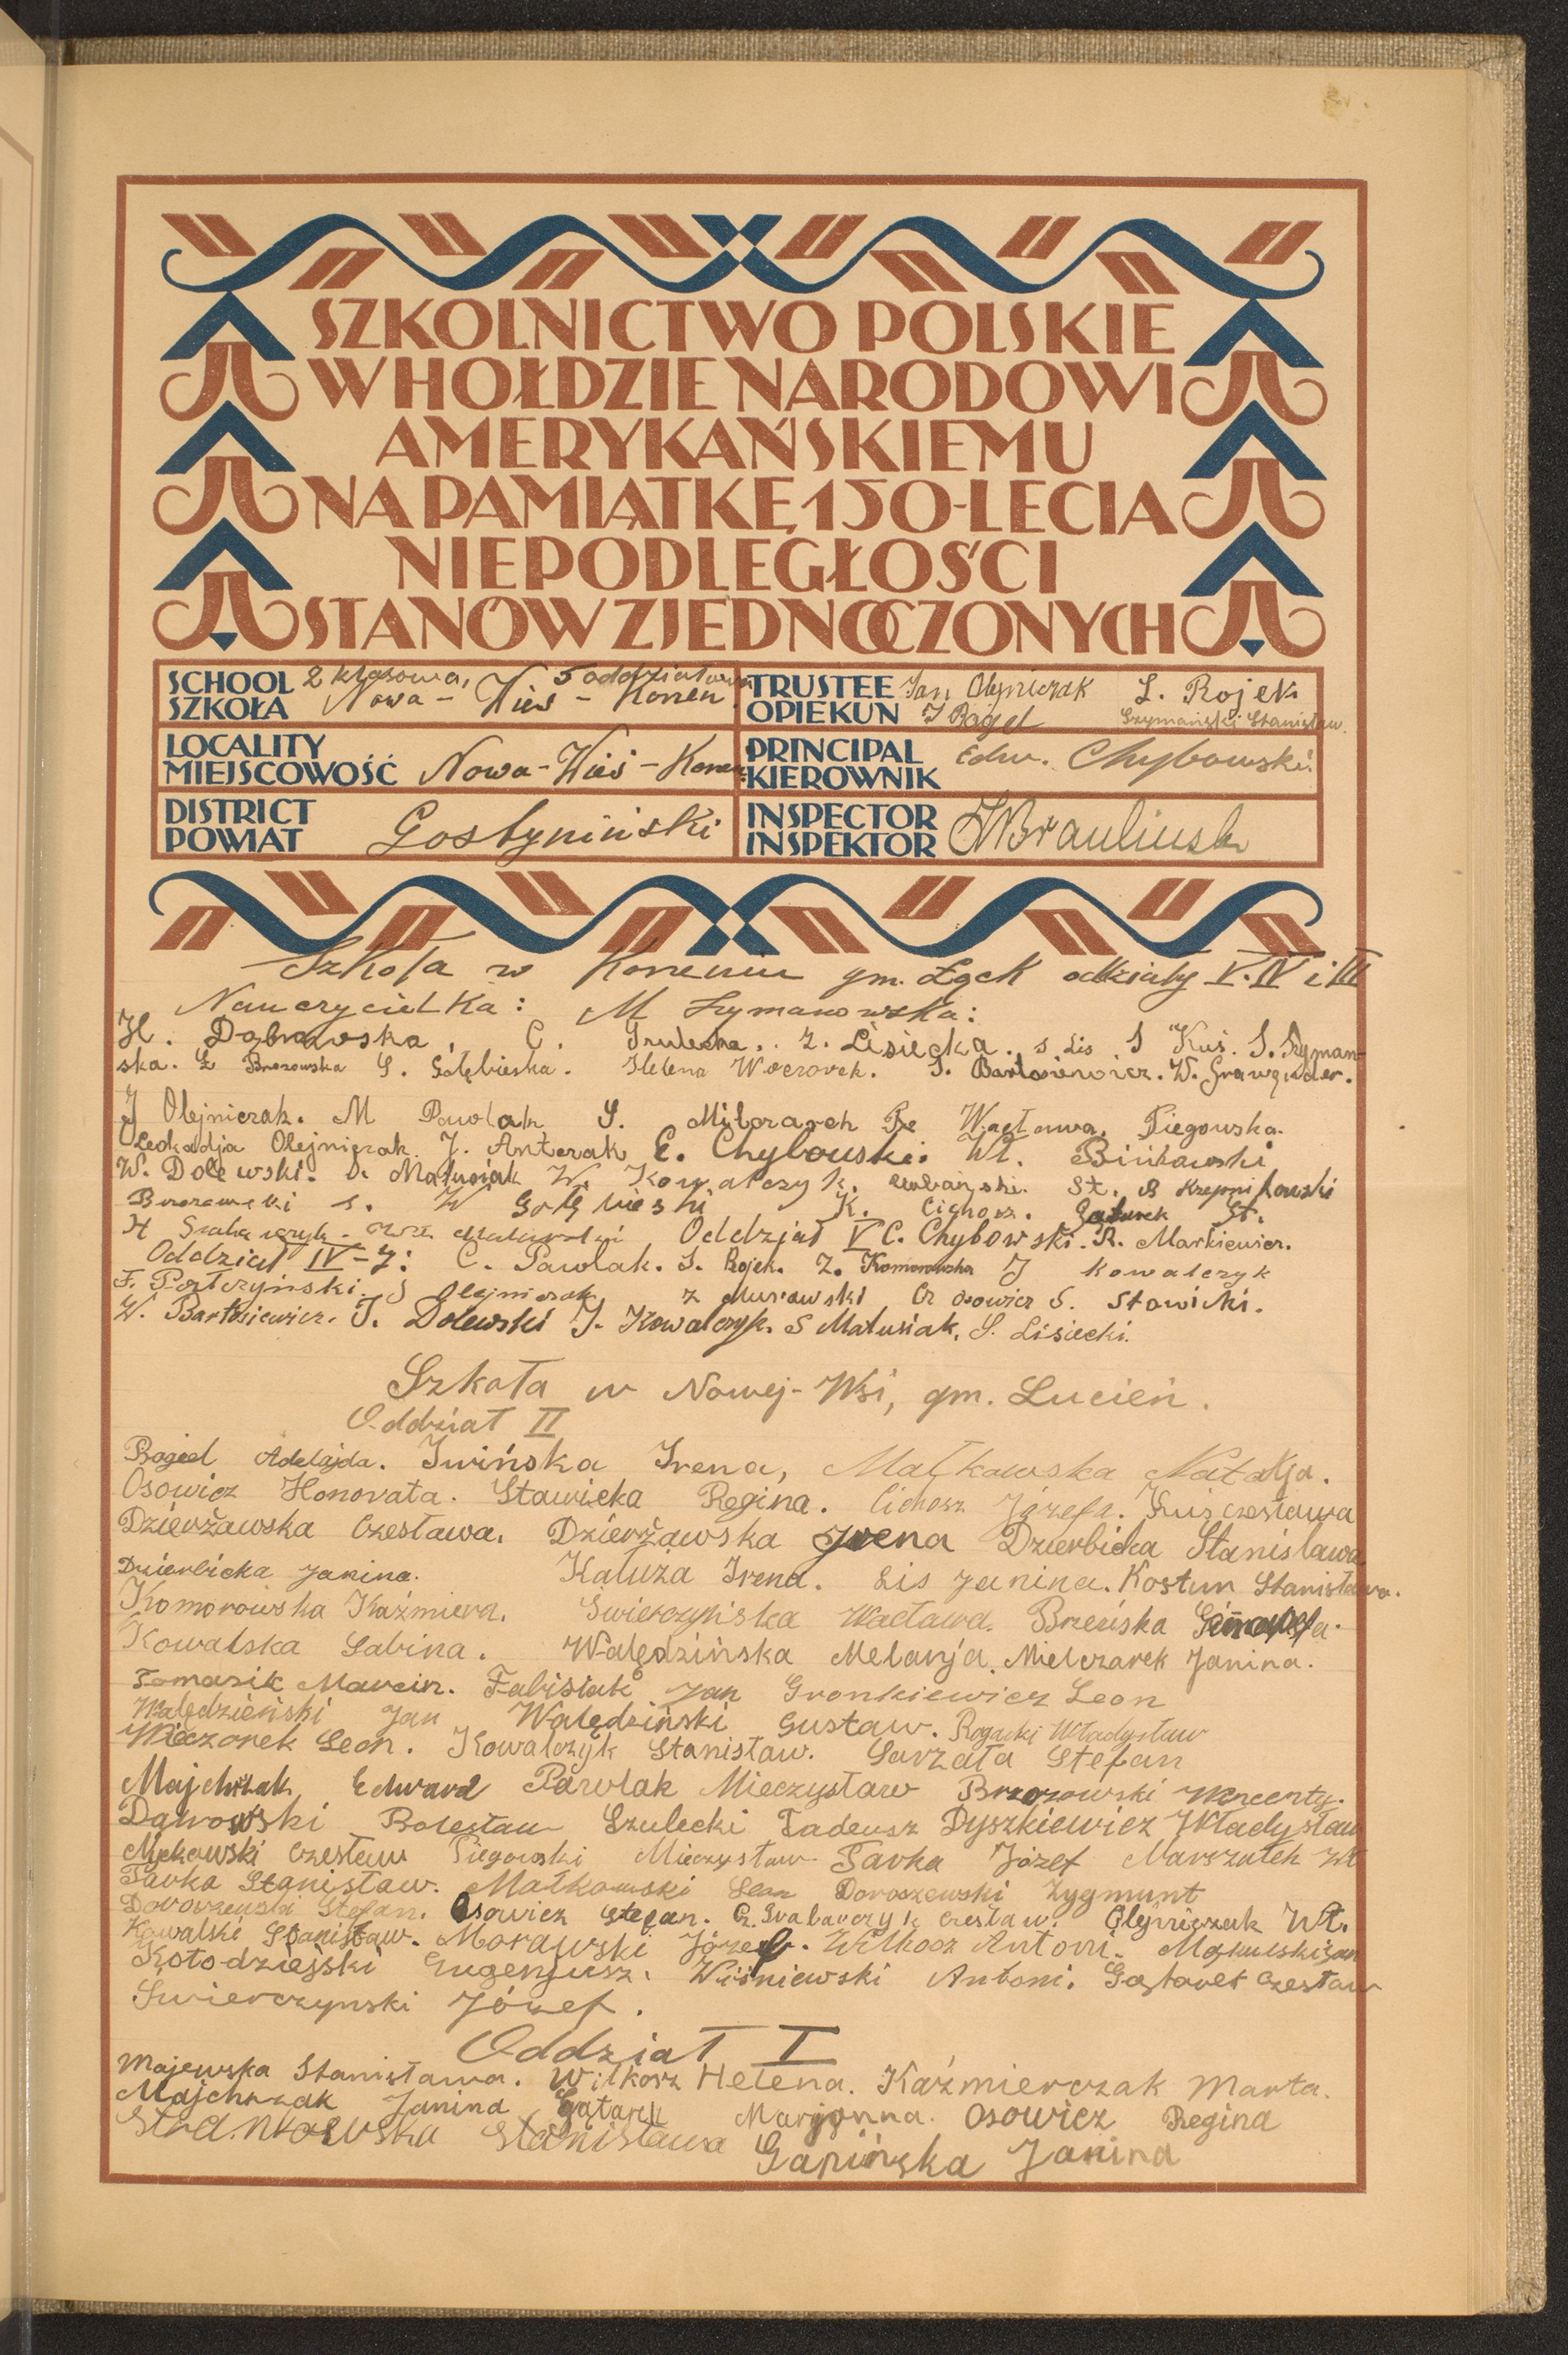 SZKOLNICTWO POLSKIE
W HOŁDZIE NARODOWI
AMERYKAŃSKIEMU
NA PAMIĄTKĘ 150-LECIA
NIEPODLEGŁOŚCI
STANÓW ZJEDNOCZONYCH
SCHOOL SZKOŁA 2 klasowa, 5 oddziałowa
Nowa-Wieś-Koren
TRUSTEE OPIEKUN Jan Olejniczak S. Rojek
J Bagel Szymański Stanisław.
LOCALITY MIEJSCOWOŚĆ Nowa-Wieś-Koren
PRINCIPAL KIEROWNIK Edw. Chybowski.
DISTRICT POWIAT Gostyniński
INSPECTOR INSPEKTOR
Szkoła w Koreniu gm. Łąck oddziały V. IV i III
Nauczycielka: M Szymanowska:
H. Dąbrowska, C. Z. Lisiecka. S Lis S Kuś. S. Szyman-
ska. Brzozowska S. Gołębieska. Helena Wieczorek. S. Bartosiewicz. W.
J Olejniczak. M Pawlak S. Milczarek Wacława Piegowska.
Leokadja Olejniczak J. Antczak E. Chybowski. Wł. Binkowski
W. Dolewski. Matusiak W. Kowalczyk. Urbański. St.
Brzozowski S. W Gołębieski K. Cichosz. Gątarek St.
H Oddział V C. Chybowski. R. Markiewicz.
Oddział IV-y: C. Pawlak. S. Rojek. Z. Komorowska J Kowalczyk
F. Portczyński. S Olejniczak Z Murawski Cz Osowicz S. Stawicki.
W. Bartosiewicz. J. Dolewski J. Kowalczyk. S Matusiak, S. Lisiecki.
Szkoła w Nowej-Wsi, gm. Lucień.
Oddział II
Bagiel Adelajda. Iwińska Irena, Małkowska Natalja.
Osowicz Honorata. Stawicka Regina. Cichosz Józefa. Kuś Czesława
Dzierżawska Czesława. Dzierżawska Irena Dzierbicka Stanisława
Dzierbicka Janina. Kałuża Irena. Lis Janina. Kostun Stanisława.
Komorowska Kaźmiera. Swierczyńska Wacława. Brzeńska
Kowalska Sabina. Walędzińska Melanja. Mielczarek Janina.
Tomasik Marcin. Fabisiak Jan Gronkiewicz Leon
Walędzieński Jan Walędziński Gustaw. Rogacki Władysław
Wieczorek Leon. Kowalczyk Stanisław. Sarzała Stefan
Majchrzak Edward Pawlak Mieczysław Brzozowski Wincenty.
Bolesław Szulecki Tadeusz Dyszkiewicz Władysław
Czesław Piegowski Mieczysław Tarka Józef Marszałek Wł
Tarka Stanisław. Małkowski Leon Doroszewski Zygmunt
Doroszewski Stefan. Osowicz Stefan. Grabarczyk Czesław. Olejniczak Wł.
Kowalski Stanisław. Morawski Józef. Wilkosz Antoni. Jan
Kołodziejski Eugenjusz. Wiśniewski Antoni. Gątarek Czesław
Swierczynski Józef.
Oddział I
Majewska Stanisława. Wilkosz Helena. Kaźmierczak Marta.
Majchrzak Janina Gątarek Marjanna. Osowicz Regina
Stanisława Gapińska Janina